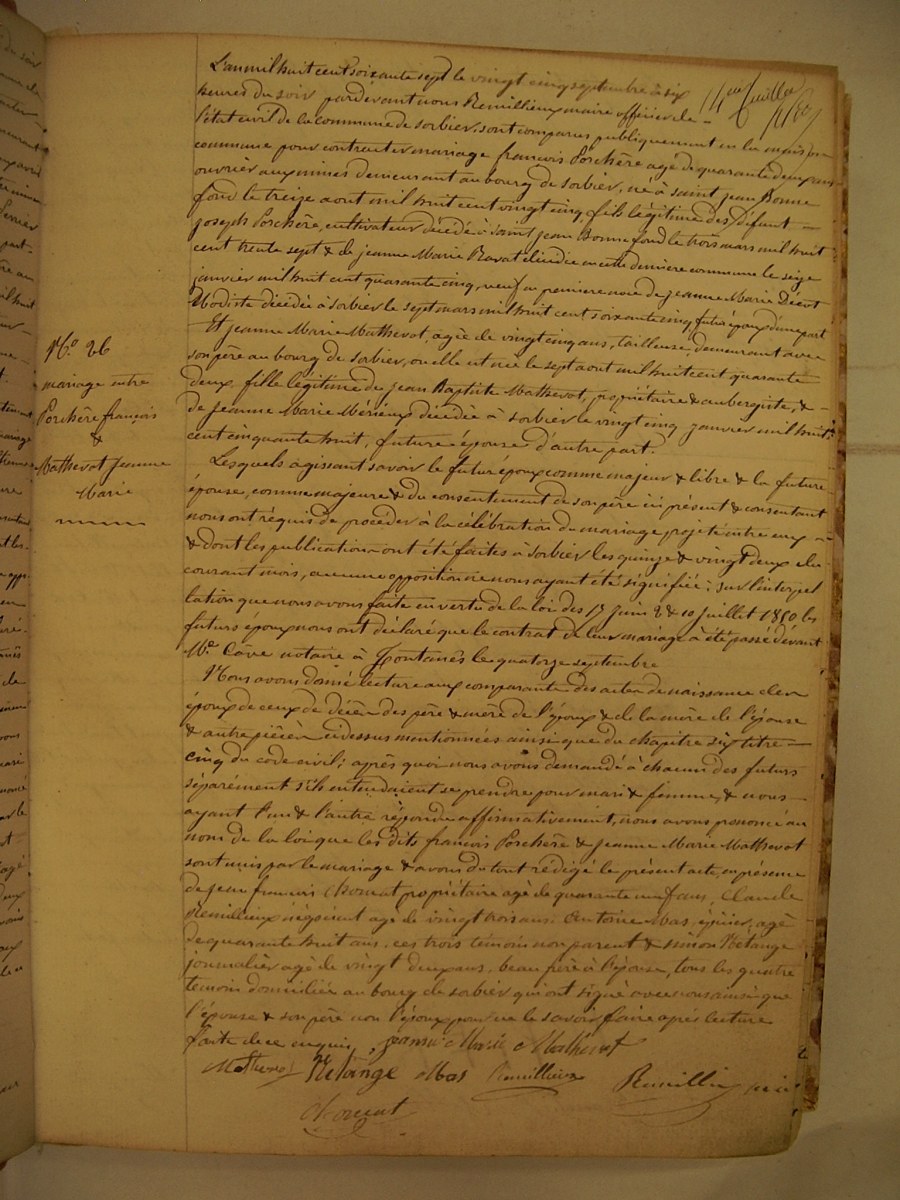 11me feuillet
1867
L'an mil huit cent soixante sept le vingt cinq septembre à six
heures du soir pardevant nous Remillieux maire officier de
l'état civil de la commune de Sorbier, sont comparus publiquement en la maison
commune pour contracter mariage françois Porchère agé de quarante deux ans
ouvrier aux mines demeurant au bourg de Sorbier, né à saint jean Bonne
fond le treize aout mil huit cent vingt cinq fils légitime des défunt
joseph Porchère, cultivateur décédé à saint jean Bonnefond le trois mars mil huit
cent trente sept & de jeanne Marie Ravat décédée en cette dernière commune le seize
janvier mil huit cent quarante cinq, veuf en première noce de jeanne Marie
Modiste décédée à Sorbier le sept mars mil huit cent soixante cinq, futur époux d'une part
Et jeanne Marie Mathevot, agée de vingt cinq ans, tailleuse, demeurant avec
son père au bourg de Sorbier, ou elle est née le sept aout mil huit cent quarante
deux, fille légitime de jean Baptiste Mathevot, propriétaire & aubergiste, &
de jeanne Marie Mérieux décédée à Sorbier le vingt cinq janvier mil huit
cent cinquante huit, future épouse d'autre part.
Lesquels agissant savoir le futur époux comme majeur & libre & la future
épouse, comme majeure & du consentement de son père ici présent & consentant
nous ont réquis de procéder à la célébration du mariage projeté entre eux
& dont les publications ont été faites à Sorbier les quinze & vingt deux du
courant mois, aucune opposition ne nous ayant été signifiée; sur l'interpel
lation que nous avons faite en vertu de la loi des 17 juin & 10 juillet 1850 les
futurs époux nous ont déclaré que le contrat de leur mariage a été passé devant
Me Cave notaire à Fontanès le quatorze septembre
Nous avons donné lecture aux comparants des actes de naissance des
époux de ceux de décès des père & mère de l'époux & de la mère de l'épouse
& autre pièces ci dessus mentionnées ainsi que du chapitre six titre
cinq du code civil; après quoi nous avons demandé à chacun des futurs
séparément s'ils entendaient se prendre pour mari & femme, & nous
ayant l'un & l'autre répondu affirmativement, nous avons prononcé au
nom de la loi que les dits françois Porchère & jeanne Marie Mathevot
sont unis par le mariage & avons du tout rédigé le présent acte, en présence
de jean françois Chomat propriétaire agé de quarante ans, Claude
Remillieux négociant agé de vingt trois ans, Antoine Mas, épicier, agé
de quarante huit ans, ces trois témoins non parent & simon Relange
journalier agé de vingt deux ans, beau frère à l'épouse, tous les quatre
temoins domiciliés au bourg de Sorbier qui ont signé avec nous ainsi que
l'épouse & son père non l'époux pour ne le savoir faire après lecture
faite de ce enquis, jeanne Marie Mathevot
Mathevot Relange Mas Remillieux Remillieux
Chomat
No 26
mariage entre
Porchère françois
&
Mathevot Jeanne
Marie